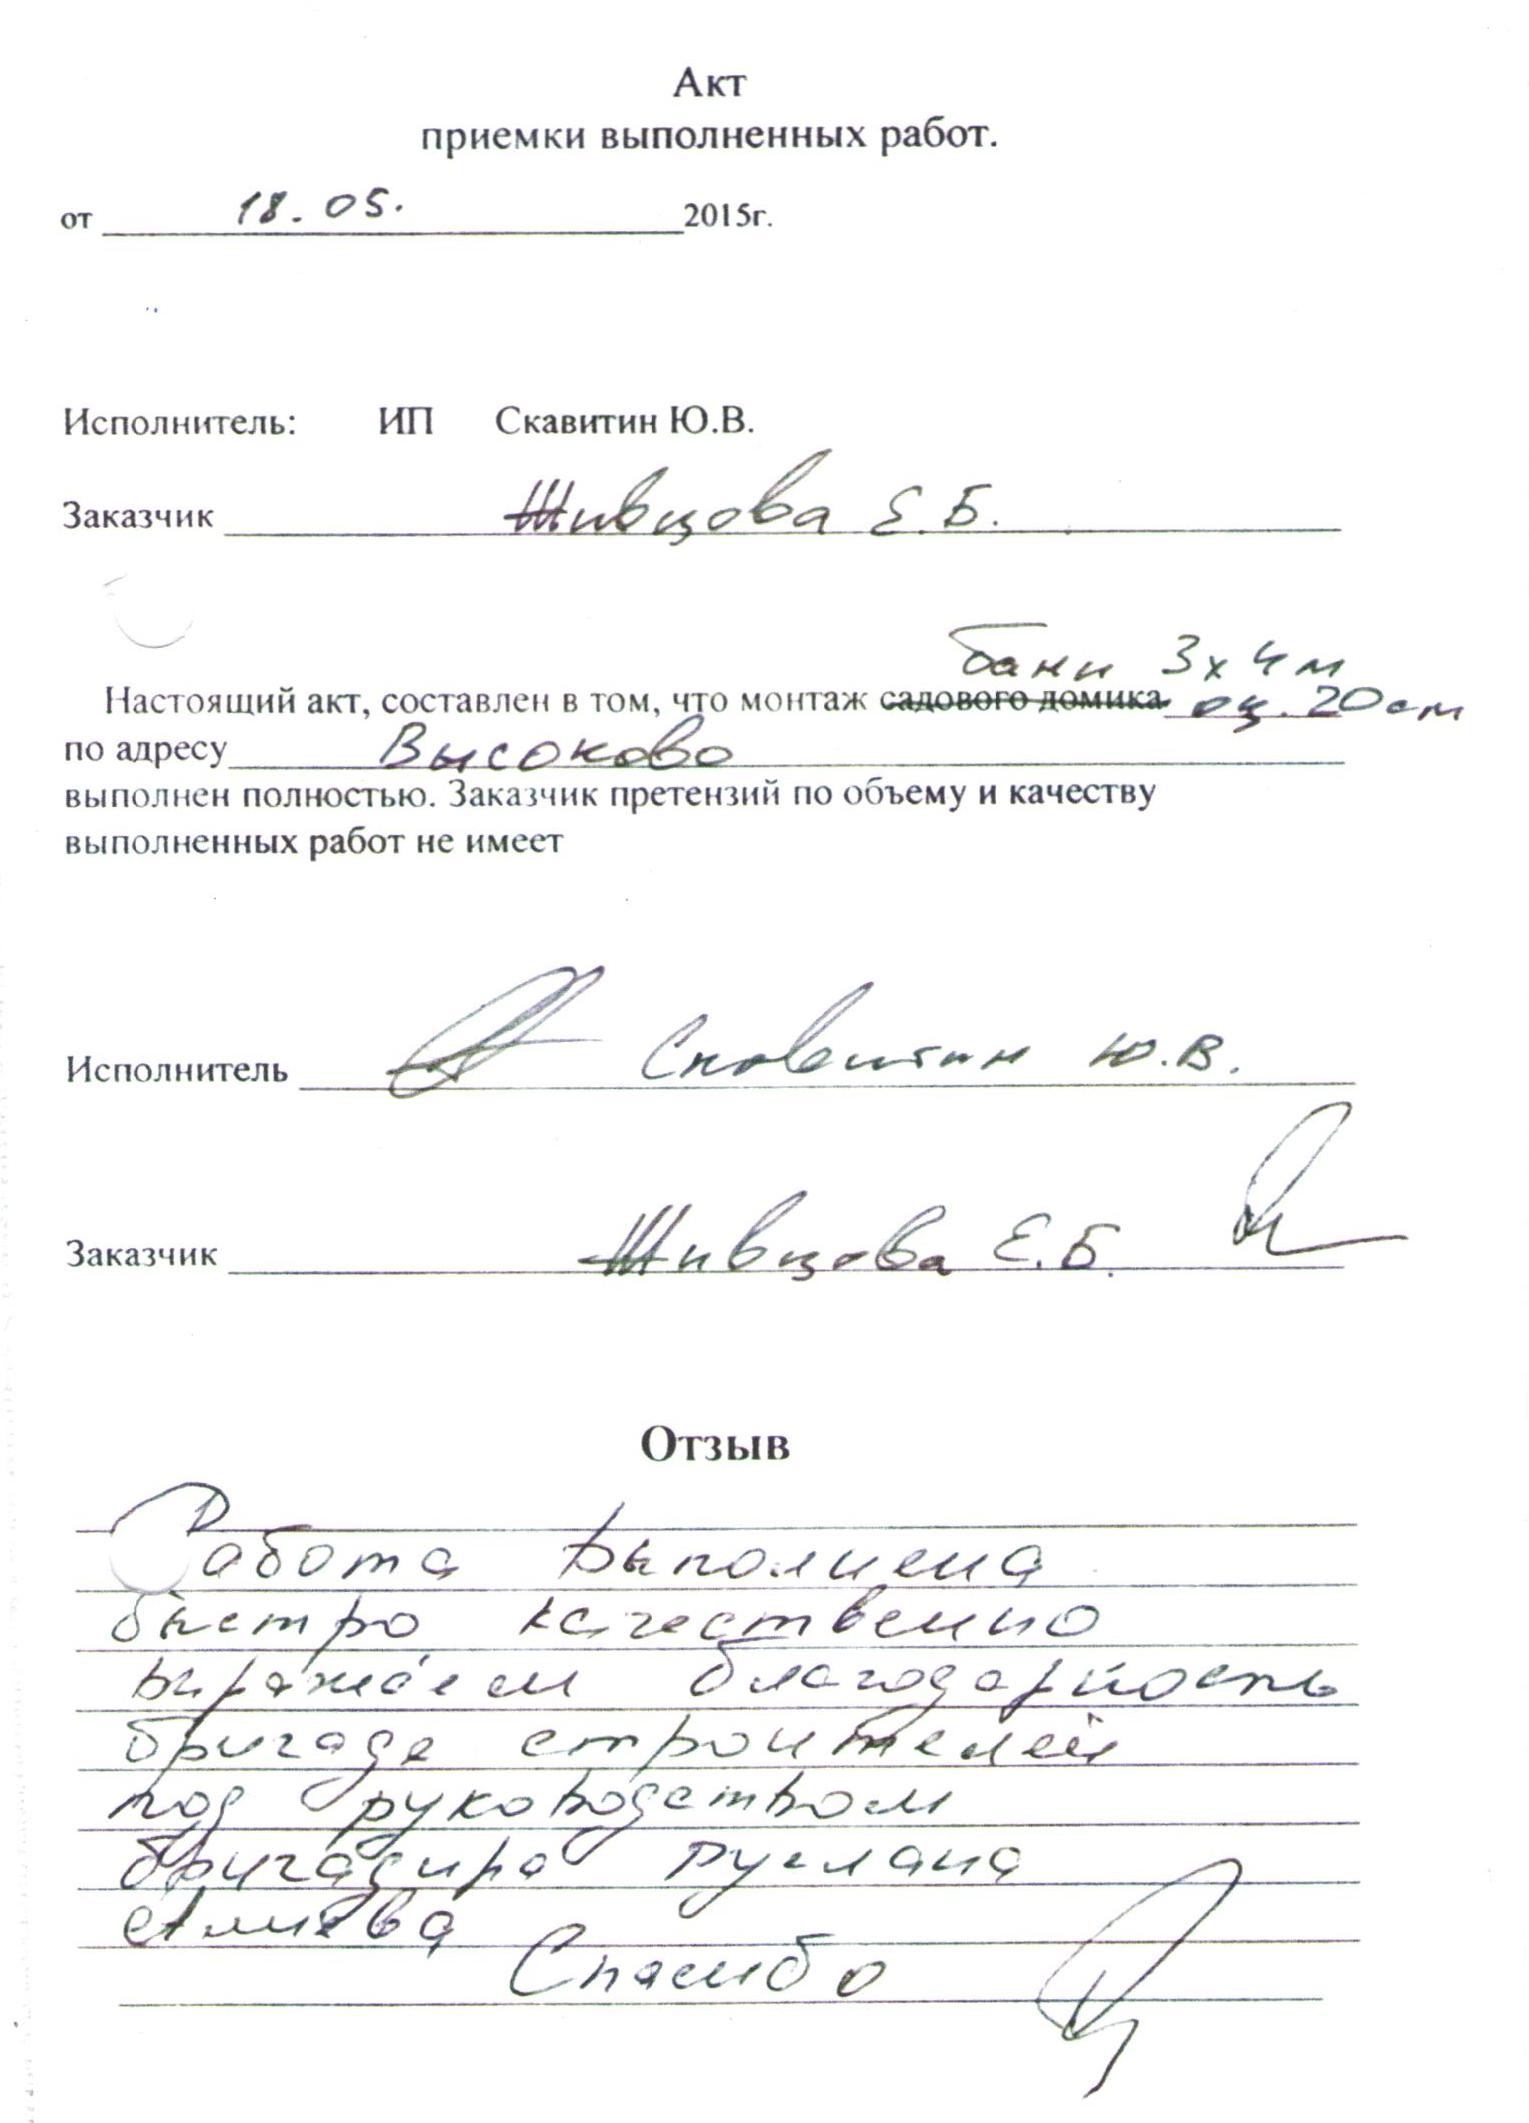 Акт
приемки выполненных работ.
от 18.05. 2015г.
Исполнитель: ИП Скавитин Ю.В.
Заказчик Живцова Е.Б.
бани 3х4м
Настоящий акт, составлен в том, что монтаж садового домика оц. 20см
по адресу Высоково
выполнен полностью. Заказчик претензий по объему и качеству
выполненных работ не имеет
Исполнитель Скавитин Ю.В.
Заказчик Живцова Е.Б.
Отзыв
Работа выполнена
быстро качественно
выражаем благодарность
бригаде строителей
под руководством
бригадира Руслана
Алиева
Спасибо